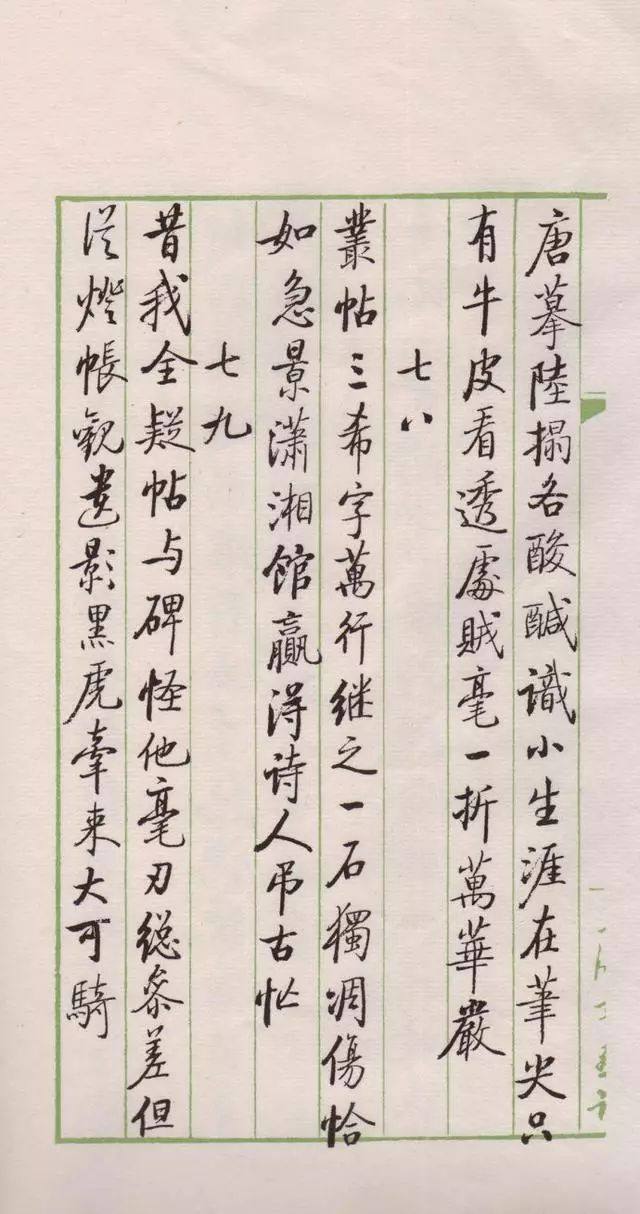 唐摹陸搨各酸醎識小生涯在筆尖只
有牛皮看透處賊毫一折萬華嚴
七八
叢帖三希字萬行继之一石獨凋傷恰
如急景潇湘館贏得诗人吊古忙
七九
昔我全疑帖与碑怪他毫刃總参差但
從燈帳觀遺影黑虎牽来大可騎